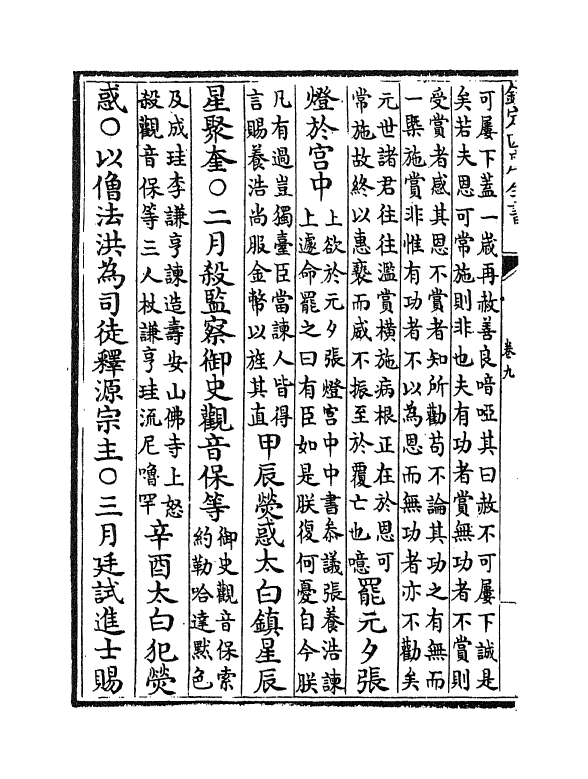 欽定四庫全書
卷九
可屢下蓋一嵗再赦善良喑啞其曰赦不可屢下誠是
矣若夫恩可常施則非也夫有功者賞無功者不賞則
受賞者感其恩不賞者知所勸苟不論其功之有無而
一槩施賞非惟有功者不以為恩而無功者亦不勸矣
元世諸君往往濫賞橫施病根正在於恩可
常施故終以惠褻而威不振至於覆亡也噫
罷元夕張
燈於宫中
上欲於元夕張燈宫中中書叅議張養浩諫
上遽命罷之曰有臣如是朕復何憂自今朕
凡有過豈獨臺臣當諫人皆得
言賜養浩尚服金幣以旌其直
甲辰熒惑太白鎮星辰
星聚奎○二月殺監察御史觀音保等
御史觀音保索
約勒哈達默色
及成珪李謙亨諫造壽安山佛寺上怒
殺觀音保等三人杖謙亨珪流尼嚕罕
辛酉太白犯熒
惑○以僧法洪為司徒釋源宗主○三月廷試進士賜